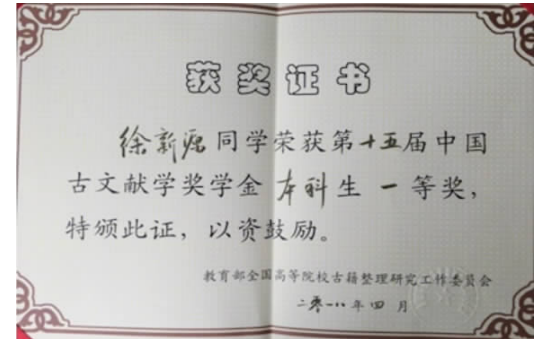 获奖证书
徐新源同学荣获第十五届中国
古文献学奖学金本科生一等奖，
特颁此证，以资鼓励。
教育部全国高等院校古籍整理研究工作委员会
二零一八年四月